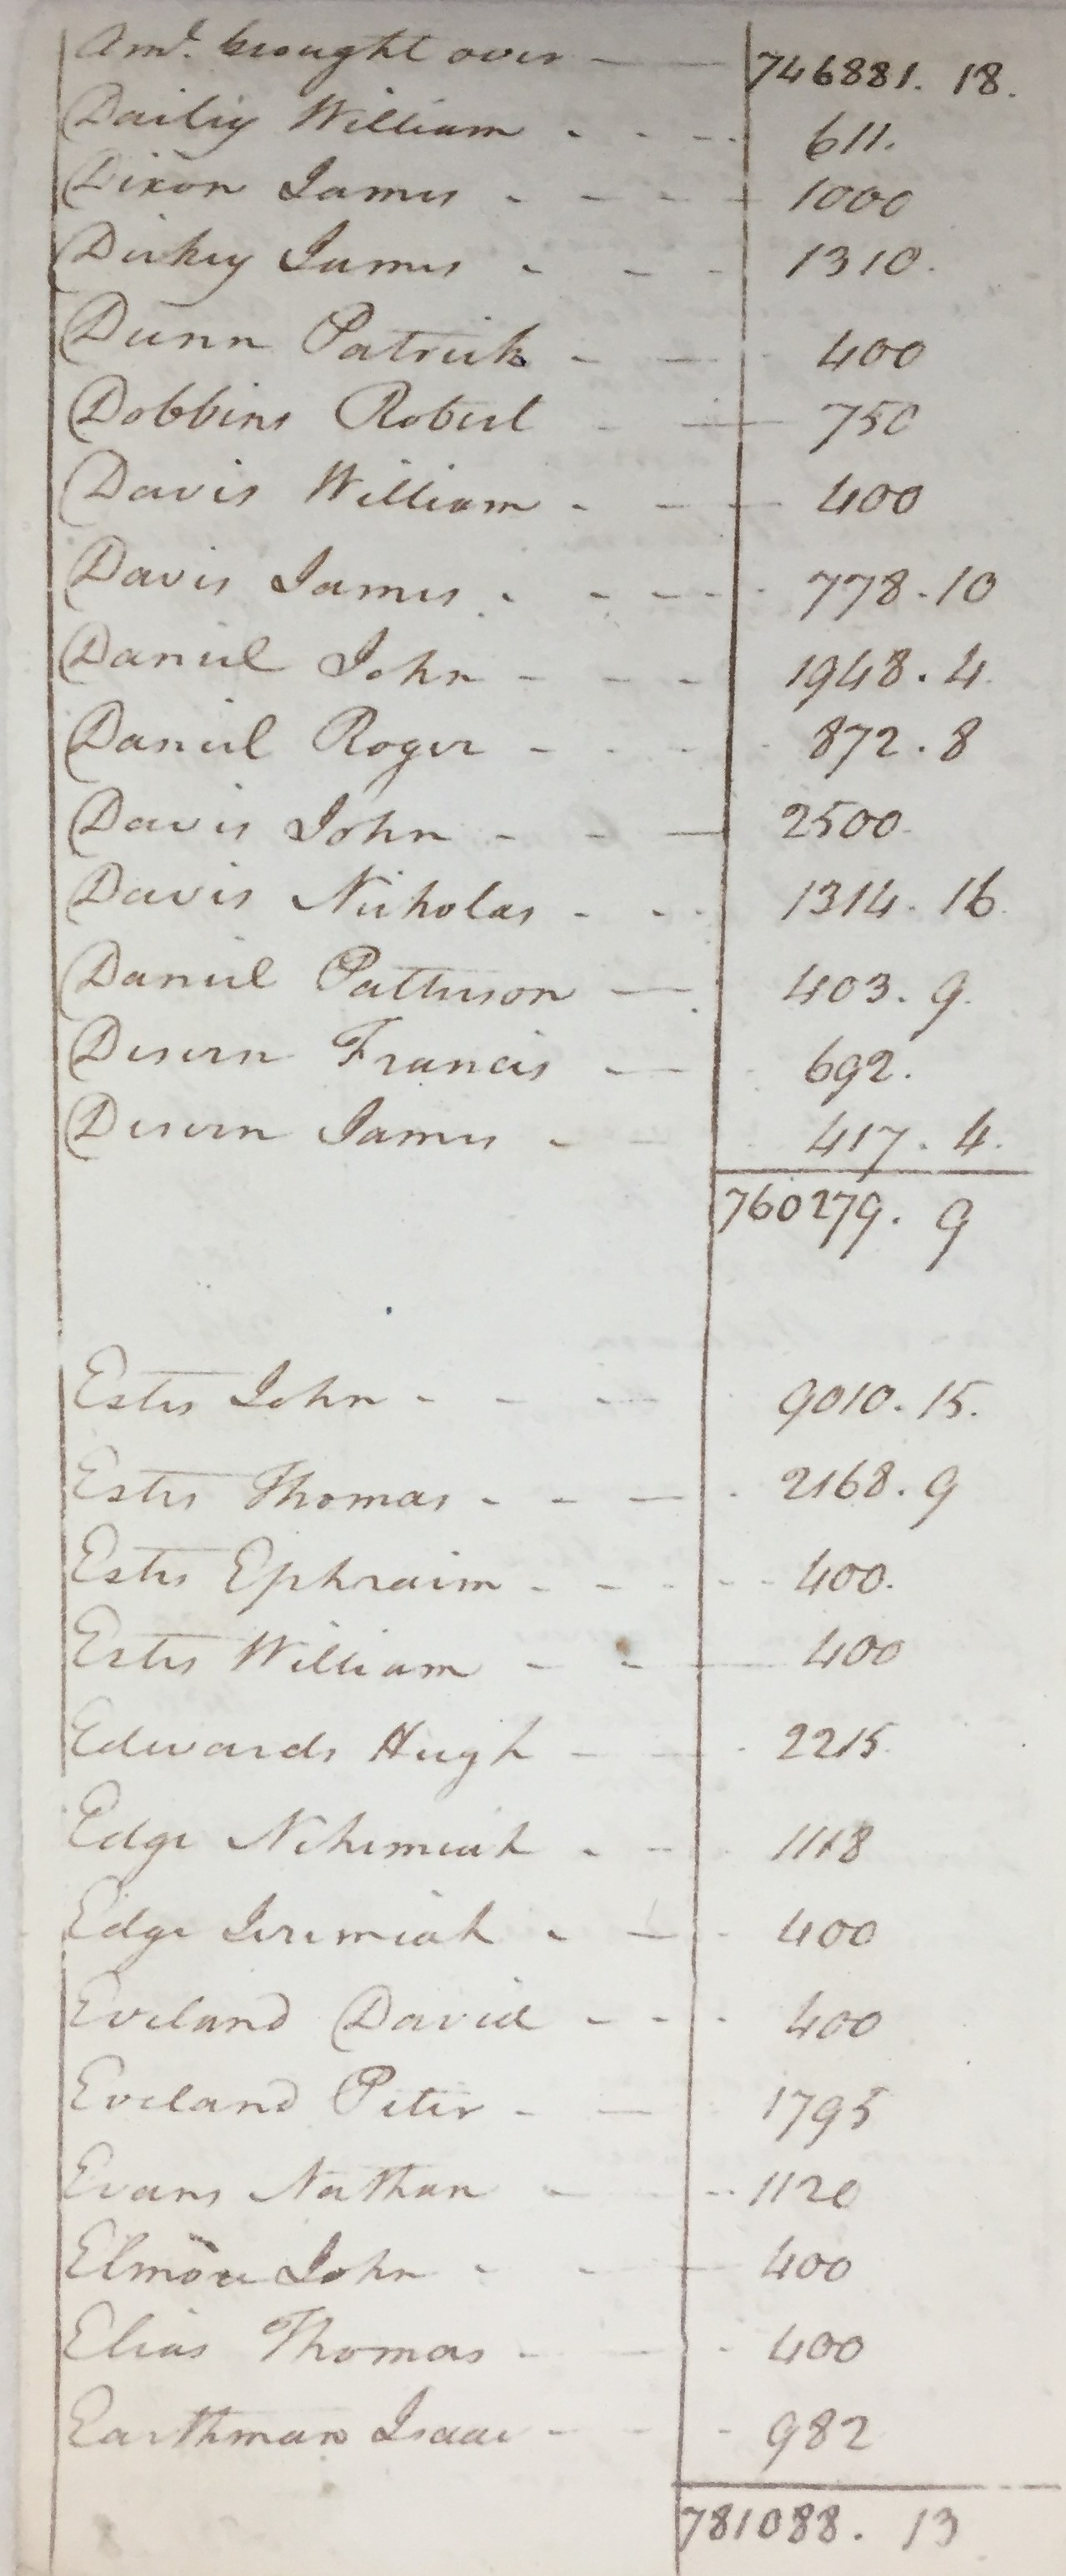 Amt. brought over 746881. 18.
Dailiy William 611.
Dixon James 1000
Dickey James 1310.
Dunn Patrick 400
Dobbins Robert 750
Davis William 400
Davis James 778.10
Daniel John 1948.4
Daniel Roger 872.8
Davis John 2500
Davis Nicholas 1314.16
Daniel Patterson 403.9
Desern Francis 692.
Desern James 417.4
760279. 9
Estes John 9010.15.
Estes Thomas 2168.9
Estes Ephraim 400.
Estes William 400
Edwards Hugh 2215
Edge Nehemiah 1118
Edge Jeremiah 400
Eveland David 400
Eveland Peter 1795
Evans Nathan 1120
Elmore John 400
Elias Thomas 400
Earthman Isaac 982
781088. 13